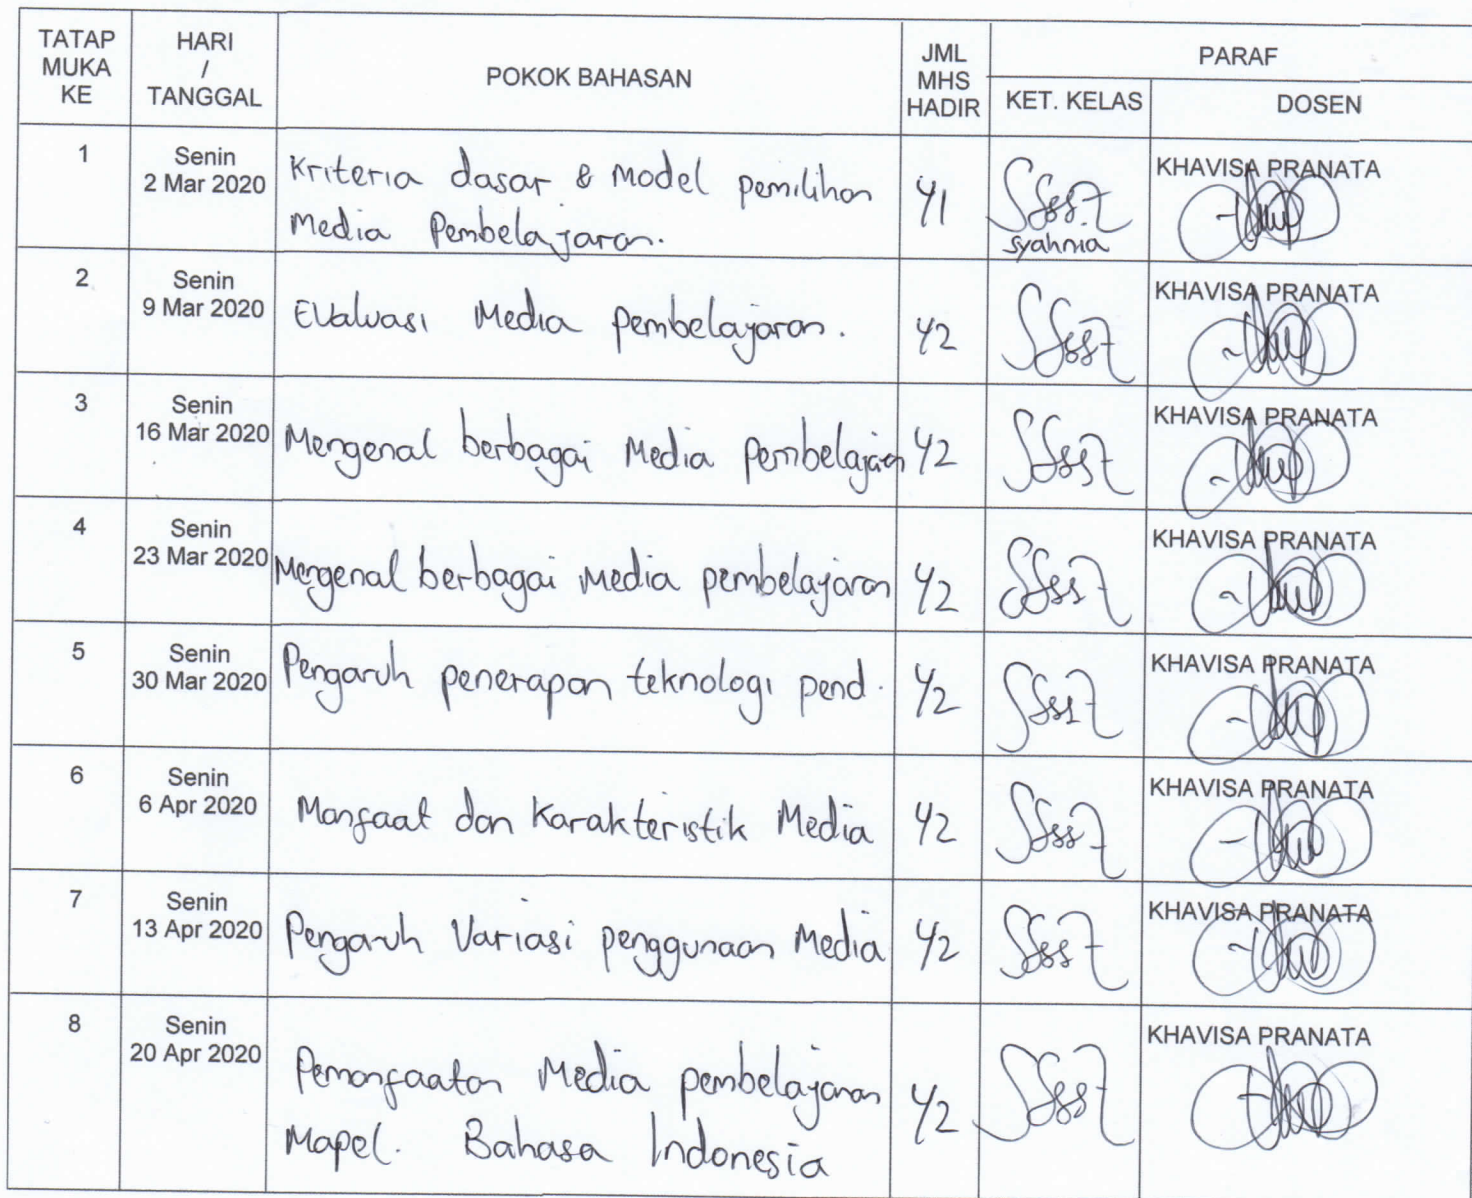 TATAP MUKA KE
HARI / TANGGAL
POKOK BAHASAN
JML MHS HADIR
PARAF
KET. KELAS
DOSEN
1
Senin
2 Mar 2020
Kriteria dasar & Model pemilihan
Media Pembelajaran.
41
syahnia
KHAVISA PRANATA
2
Senin
9 Mar 2020
Evaluasi Media pembelajaran.
42
KHAVISA PRANATA
3
Senin
16 Mar 2020
Mengenal berbagai Media pembelajaran
42
KHAVISA PRANATA
4
Senin
23 Mar 2020
Mengenal berbagai Media pembelajaran
42
KHAVISA PRANATA
5
Senin
30 Mar 2020
Pengaruh penerapan teknologi pend.
42
KHAVISA PRANATA
6
Senin
6 Apr 2020
Manfaat dan Karakteristik Media
42
KHAVISA PRANATA
7
Senin
13 Apr 2020
Pengaruh Variasi penggunaan Media
42
KHAVISA PRANATA
8
Senin
20 Apr 2020
Pemanfaatan Media pembelajaran
Mapel. Bahasa Indonesia
42
KHAVISA PRANATA